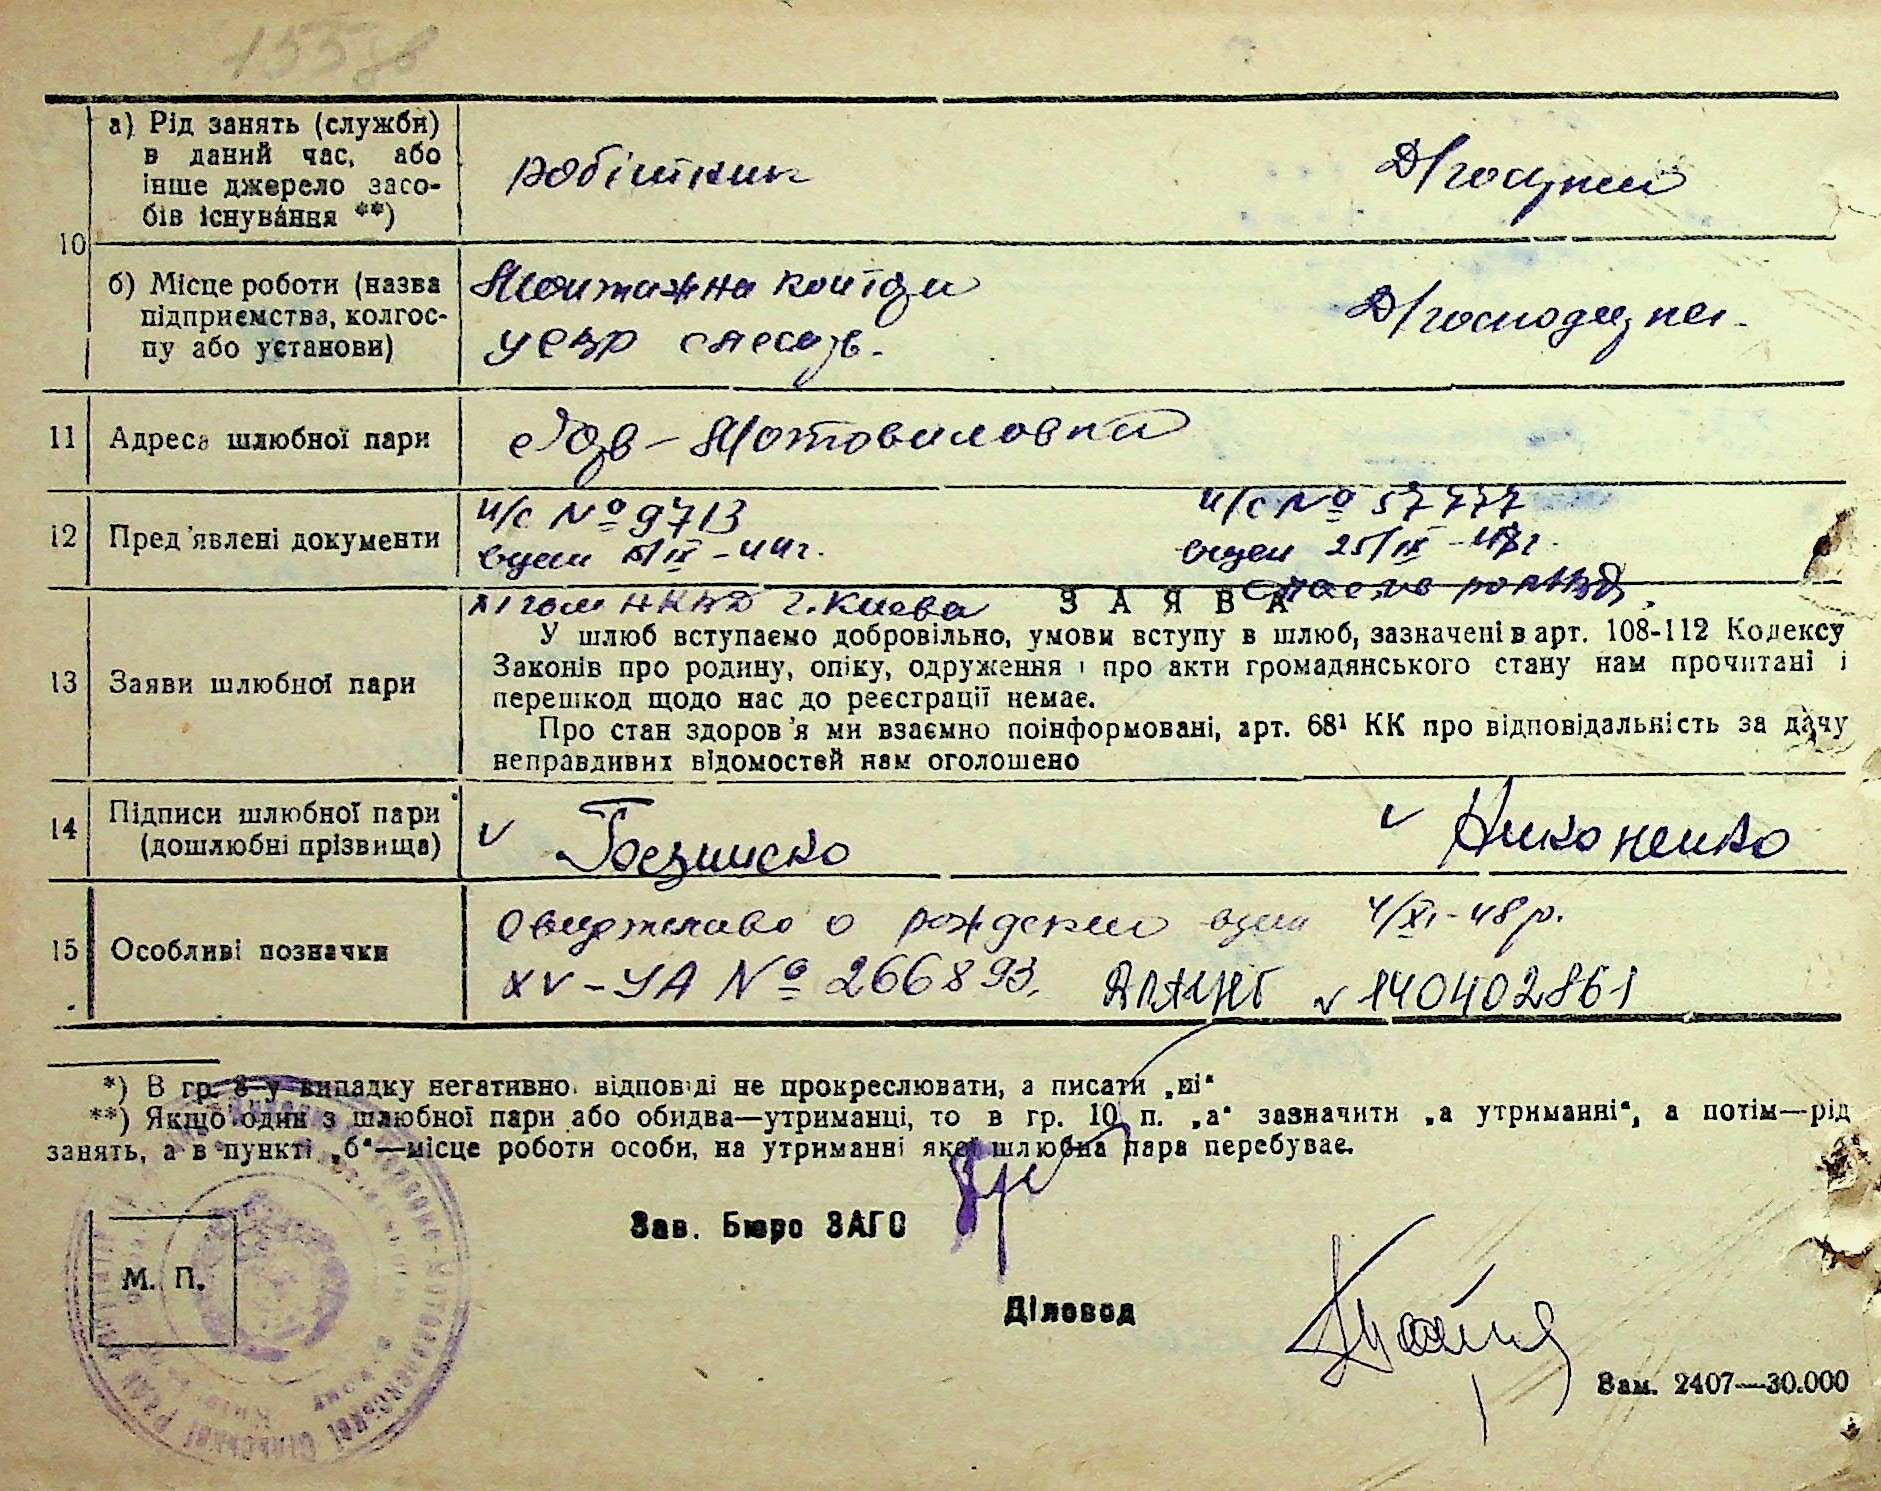 155
а) Рід занять (служби)
в даний час, або
інше джерело засо-
бів існування **)
робітник
Д/госдузки
10
б) Місце роботи (назва
підприємства, колгос-
пу або установи)
Монтажна
Д/господузки.
11 Адреса шлюбної пари
Мотовиловка
12 Пред'явлені документи
и/с № 9713
IX-44г.
и/с № 57777
25/IX-
НКВД г. Киева
ЗАЯВА
13 Заяви шлюбної пари
У шлюб вступаємо добровільно, умови вступу в шлюб, зазначені в арт. 108-112 Кодексу
Законів про родину, опіку, одруження і про акти громадянського стану нам прочитані і
перешкод щодо нас до реєстрації немає.
Про стан здоров'я ми взаємно поінформовані, арт. 68¹ КК про відповідальність за дачу
неправдивих відомостей нам оголошено
14 Підписи шлюбної пари
(дошлюбні прізвища)
v
v Никоненко
15 Особливі позначки
о рождении 4/XI-48р.
XV-УА № 266893. 140402861
*) В гр. 8-у випадку негативно. відповіді не прокреслювати, а писати „ні“
**) Якщо один з шлюбної пари або обидва—утриманці, то в гр. 10 п. „а“ зазначити „а утриманні“, а потім—рід
занять, а в пункті „б“—місце роботи особи, на утриманні якої шлюбна пара перебуває.
Зав. Бюро ЗАГС
М. П.
Діловод
Зам. 2407—30.000